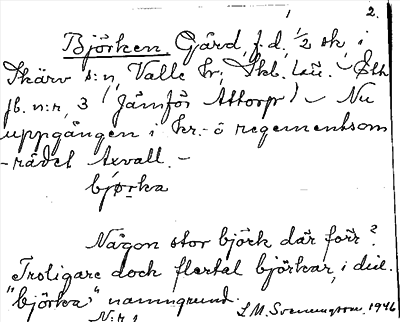 2.
Björken, Gård, f.d. 1/2 sk, i
Skärv s:n, Valle hr, Skbl. län. - Öth
jb. n:r, 3 (Jämför Attorp) - Nu
uppgången i kr.- o regementsom
-rådet Axvall. -
björka
Någon stor björk där förr?
Troligare dock flertal björkar, i disl.
"björka" namngrund.
S.M. Svenungsson. 1946
N:r 1